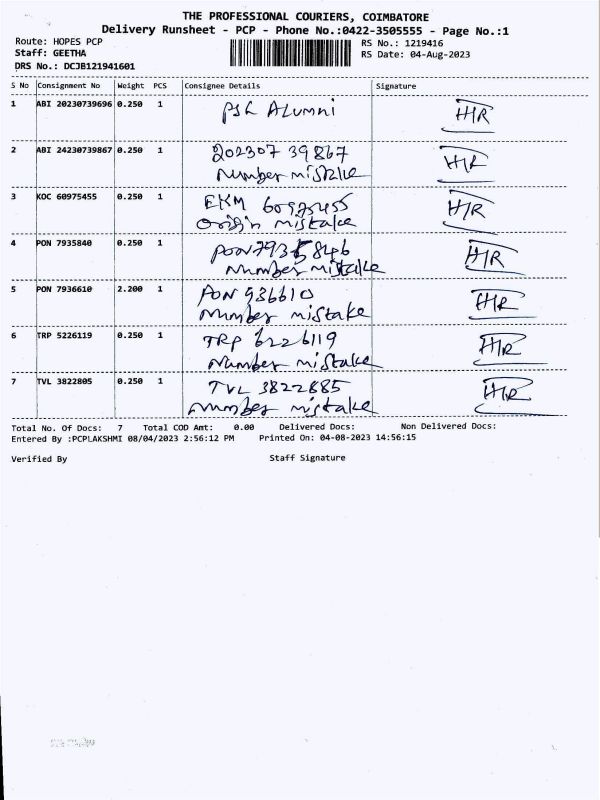 THE PROFESSIONAL COURIERS, COIMBATORE
Delivery Runsheet - PCP - Phone No.:0422-3505555 - Page No.:1
Route: HOPES PCP RS No.: 1219416
Staff: GEETHA RS Date: 04-Aug-2023
DRS No.: DCJB121941601
S No Consignment No Weight PCS Consignee Details Signature
1 ABI 20230739696 0.250 1 PSG ALUMNI HR
2 ABI 24230739867 0.250 1 202307 39867 HR
Number mistake
3 KOC 60975455 0.250 1 EKM 60975455 HR
Origin mistake
4 PON 7935840 0.250 1 PON 7935846 HR
Number mistake
5 PON 7936610 2.200 1 PON 936610 HR
Number mistake
6 TRP 5226119 0.250 1 TRP 6226119 HR
Number mistake
7 TVL 3822805 0.250 1 TVL 3822885 HR
Number mistake
Total No. Of Docs: 7 Total COD Amt: 0.00 Delivered Docs: Non Delivered Docs:
Entered By :PCPLAKSHMI 08/04/2023 2:56:12 PM Printed On: 04-08-2023 14:56:15
Verified By Staff Signature